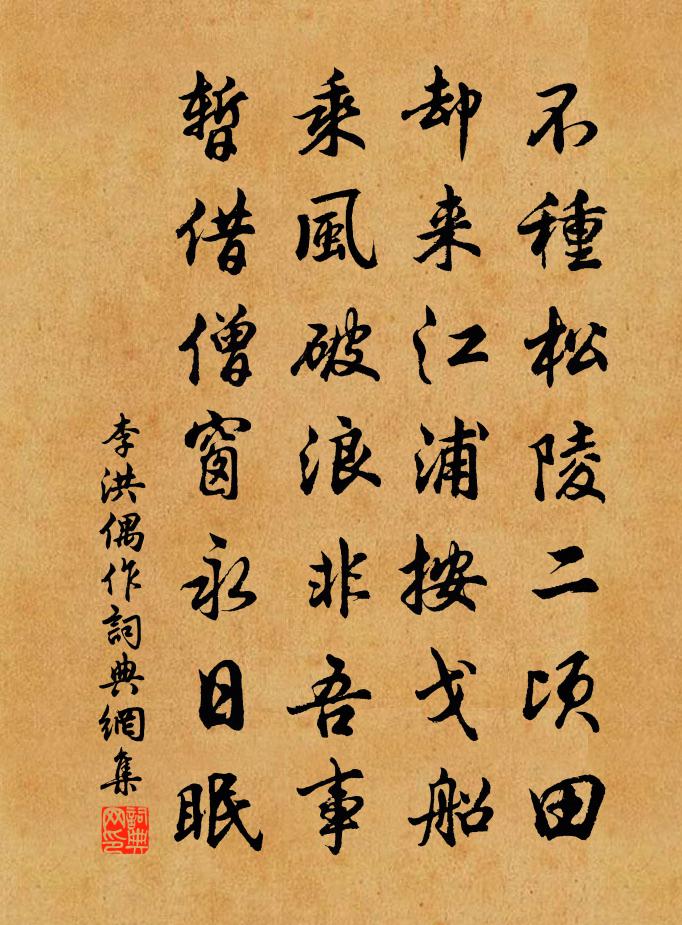 不種松陵二頃田
却来江浦按戈船
乘風破浪非吾事
暫借僧窗永日眠
李洪偶作詞典網集
詞典网印